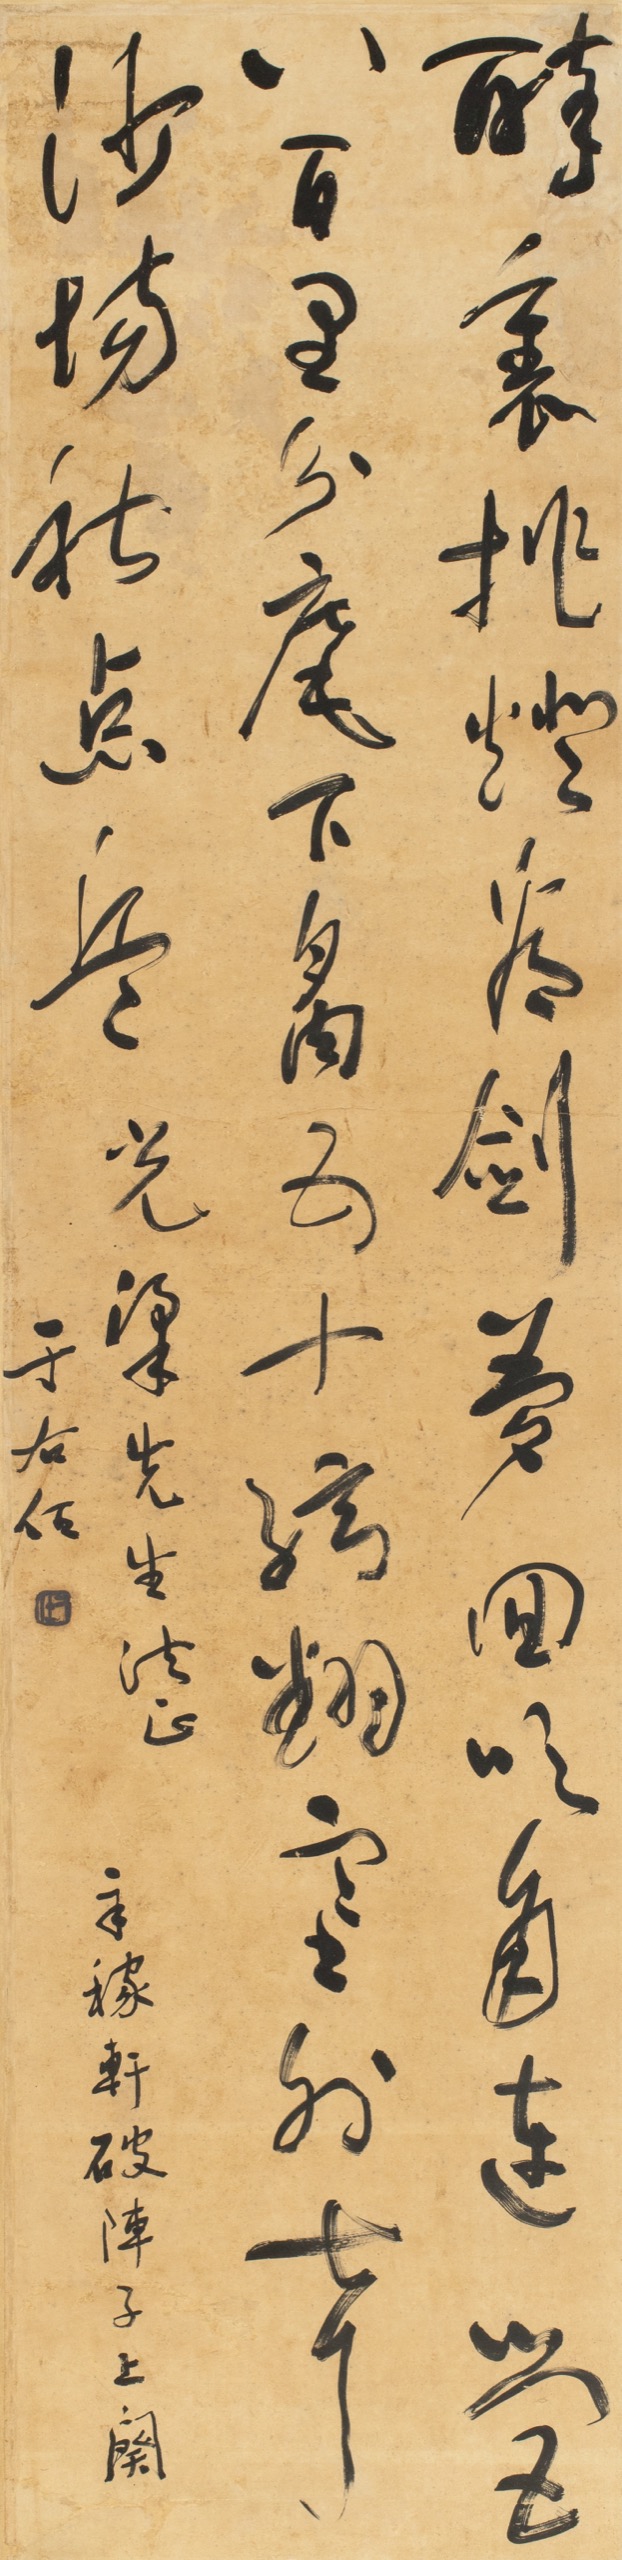 醉裏挑燈看劍夢回吹角連營
八百里分麾下炙五十絃翻塞外聲
沙場秋点兵
光梁先生法正
辛稼軒破陣子上闋
于右任